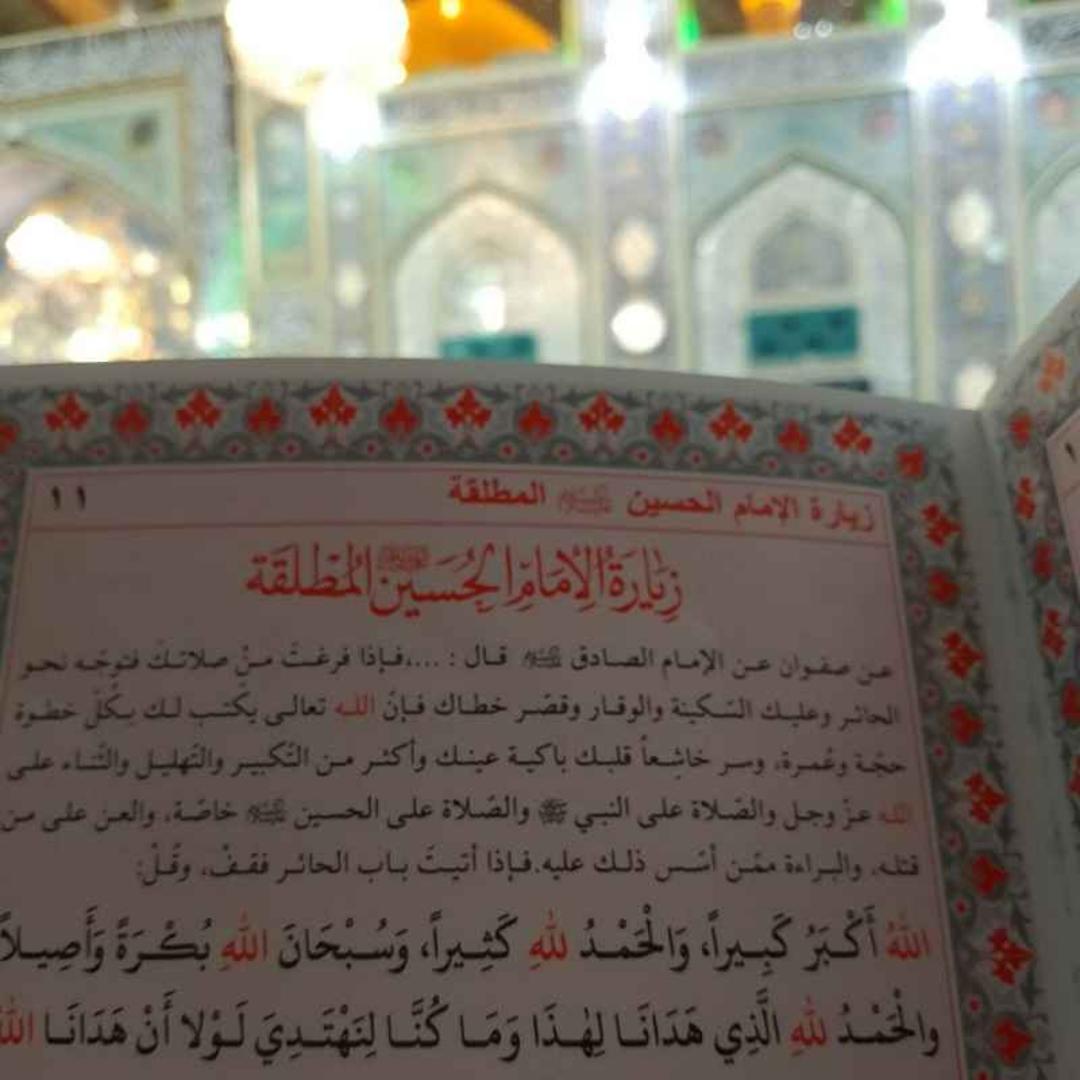 زيارة الإمام الحسين المطلقة ١١
زِيَارَةُ الْإِمَامِ الْحُسَيْنِ الْمُطْلَقَة
عن صفوان عن الإمام الصادق قال : ...،فإذا فرغتَ منْ صلاتكَ فتوجّه نحو
الحائر وعليك السّكينة والوقار وقصّر خطاك فإنّ الله تعالى يكتب لك بكلّ خطوة
حجّة وعُمرة، وسر خاشعاً قلبك باكية عينك وأكثر من التّكبير والتّهليل والثّناء على
الله عزّ وجل والصّلاة على النبي ﷺ والصّلاة على الحسين خاصّة، والعن على من
قتله، والبراءة ممّن أسّس ذلك عليه.فإذا أتيتَ باب الحائر فقفْ، وقُلْ:
اللهُ أَكْبَرُ كَبِيراً، وَالْحَمْدُ للهِ كَثِيراً، وَسُبْحَانَ اللهِ بُكْرَةً وَأَصِيلاً
والْحَمْدُ للهِ الَّذِي هَدَانَا لِهٰذَا وَمَا كُنَّا لِنَهْتَدِيَ لَوْلا أَنْ هَدَانَا اللهُ